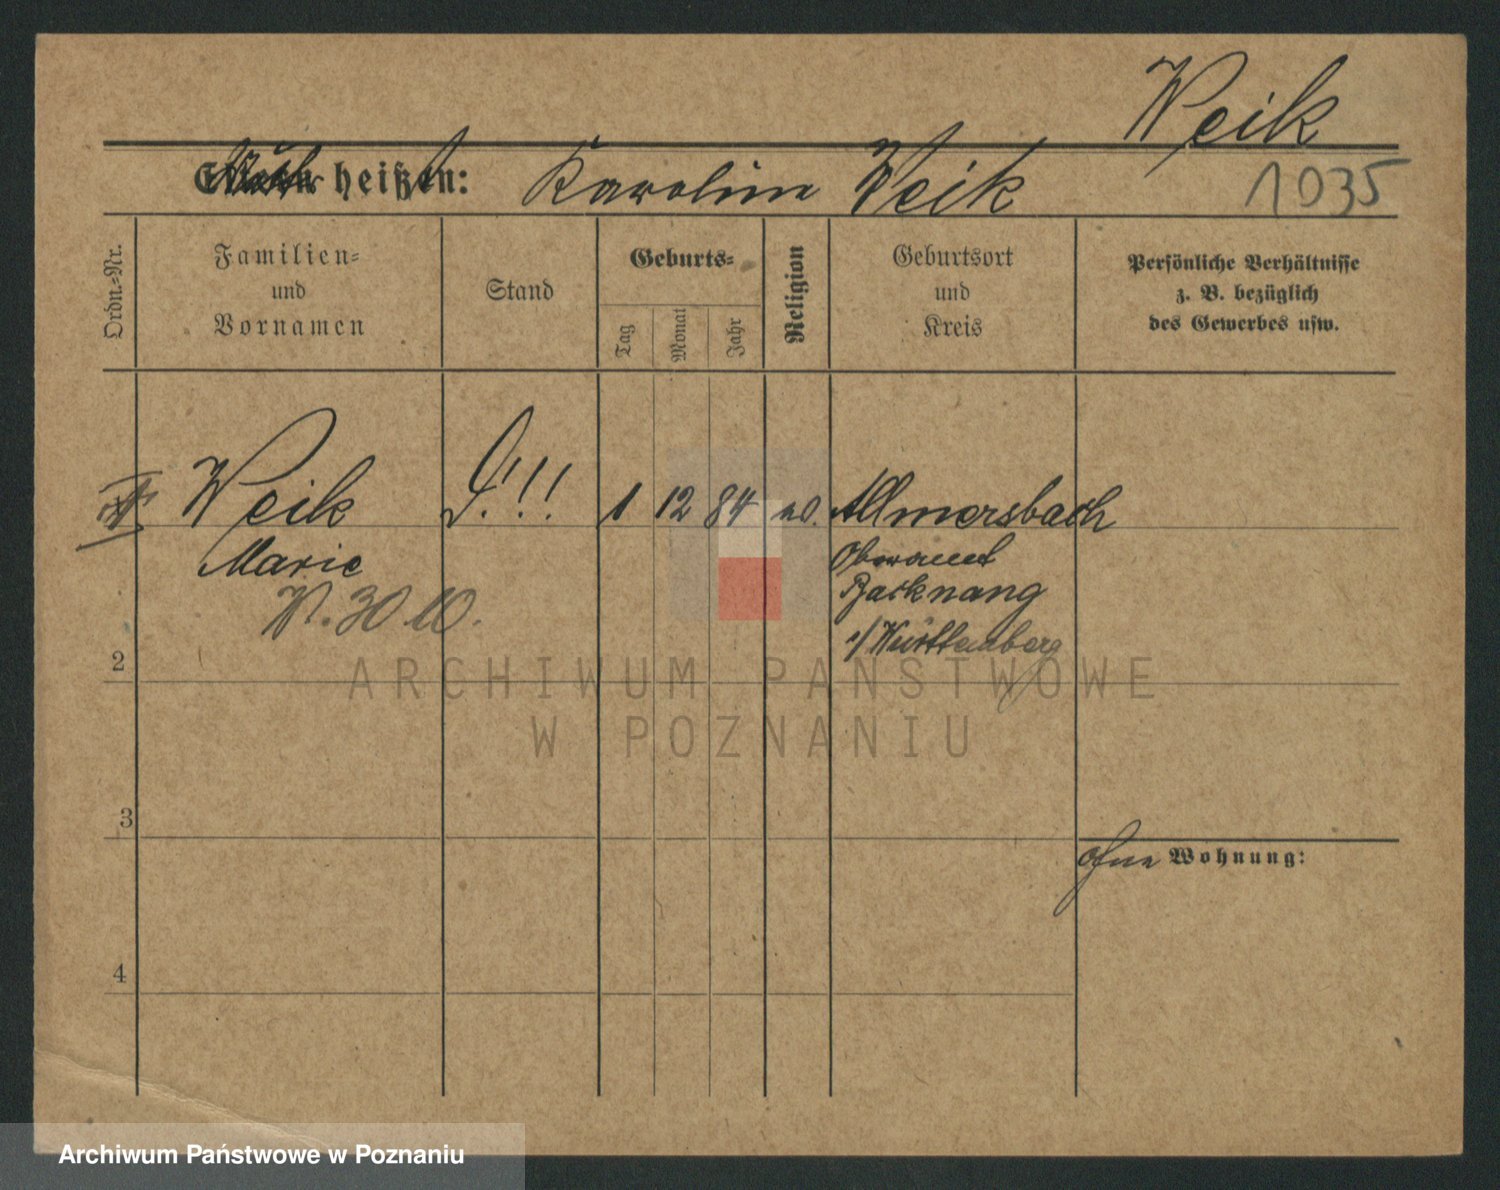 Weik
heißen: Karoline Weik
1035
Ordn.-Nr.
Familien-
und
Vornamen
Stand
Geburts-
Tag
Monat
Jahr
Religion
Geburtsort
und
Kreis
Persönliche Verhältnisse
z. B. bezüglich
des Gewerbes usw.
Weik
!!!
1 12 84
Allmersbach
Marie
Oberamt
Backnang
30 10.
i/Württemberg
2
3
ohne Wohnung:
4
ARCHIWUM PAŃSTWOWE
W POZNANIU
Archiwum Państwowe w Poznaniu